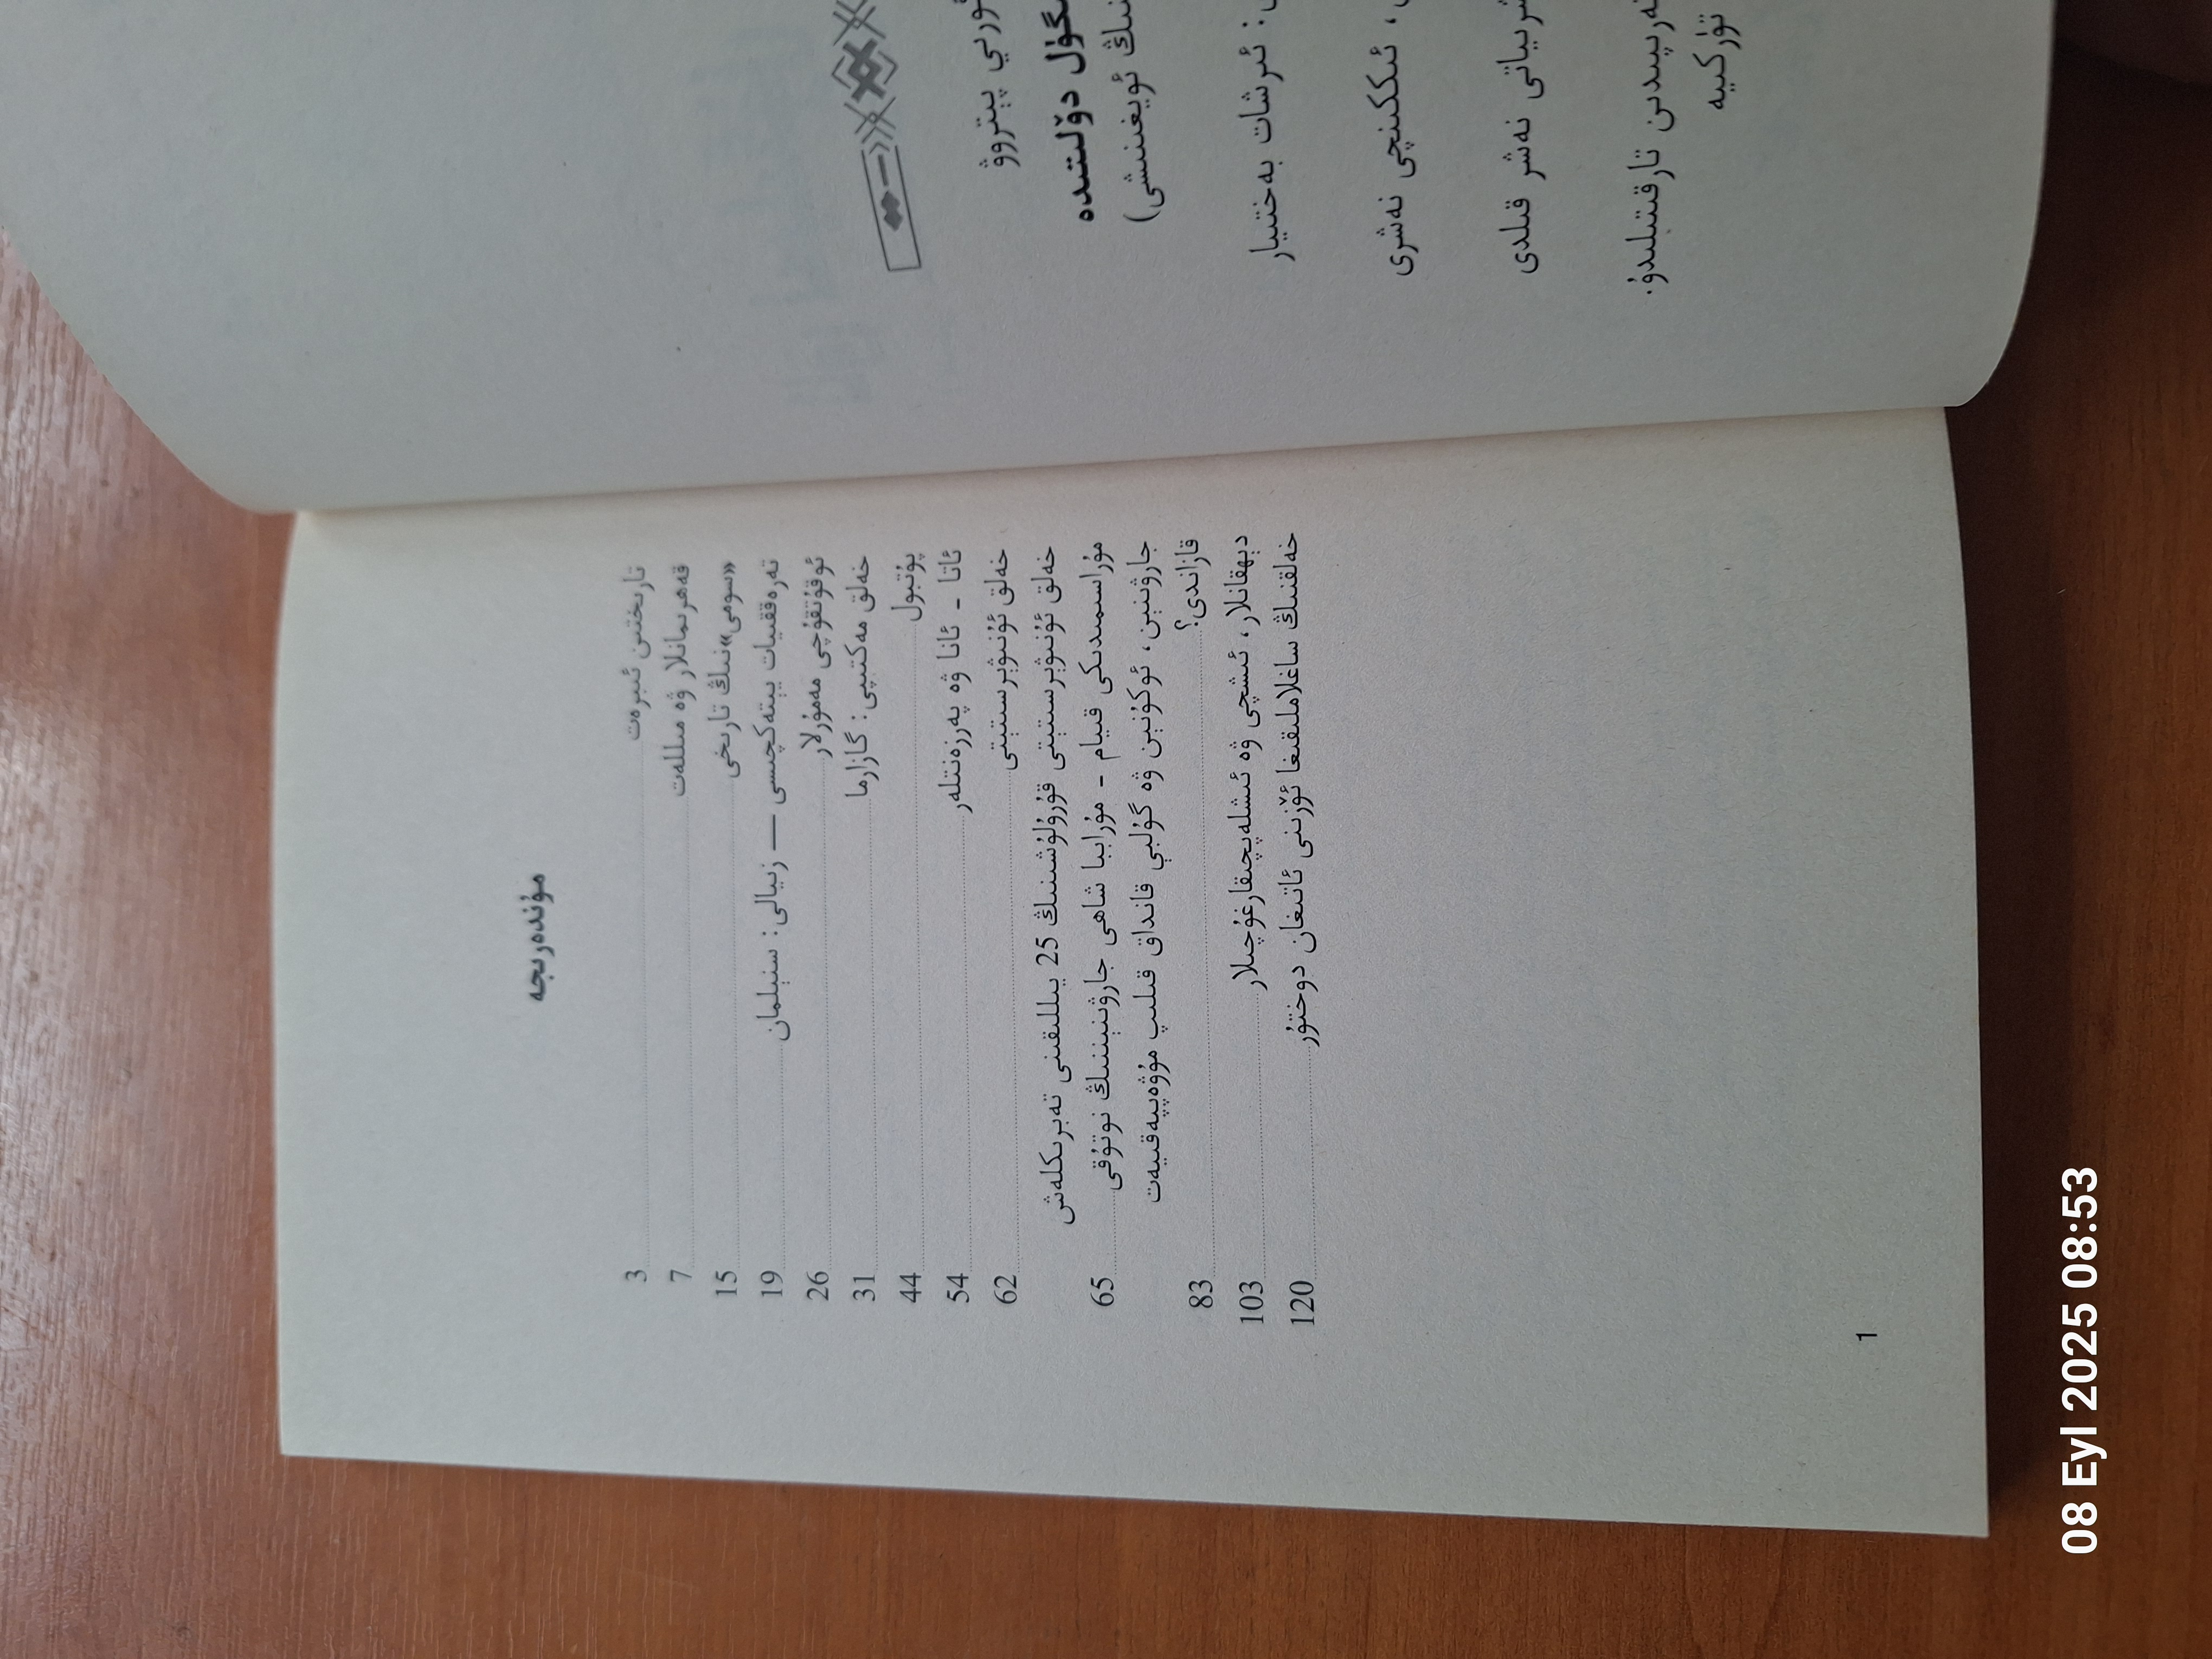 ئورىي پېتروۋ
گۈل دۆلىتىدە
نىڭ ئويغىنىشى)
: ئىرشات بەختىيار
، ئىككىنچى نەشرى
نەشر قىلدى
تارقىتىلىدۇ.
تۈركىيە
مۇندەرىجە
تارىختىن ئىبرەت 3
قەھرىمانلار ۋە مىللەت 7
«سومى»نىڭ تارىخى 15
تەرەققىيات يېتەكچىسى — زىيالى: سنېلمان 19
ئوقۇتقۇچى مەمۇرلار 26
خەلق مەكتىپى: گازارما 31
پۇتبول 44
ئاتا - ئانا ۋە پەرزەنتلەر 54
خەلق ئۇنىۋېرسىتېتى 62
خەلق ئۇنىۋېرسىتېتى قۇرۇلۇشىنىڭ 25 يىللىقىنى تەبرىكلەش
مۇراسىمىدىكى قىيام - مۇراببا شاھى جارۋىنېنىنىڭ نوتۇقى 65
جارۋىنېن، ئوكۇنېن ۋە گۇلبې قانداق قىلىپ مۇۋەپپەقىيەت
قازاندى؟ 83
دېھقانلار، ئىشچى ۋە ئىشلەپچىقارغۇچىلار 103
خەلقنىڭ ساغلاملىقىغا ئۆزىنى ئاتىغان دوختۇر 120
1
08 Eyl 2025 08:53